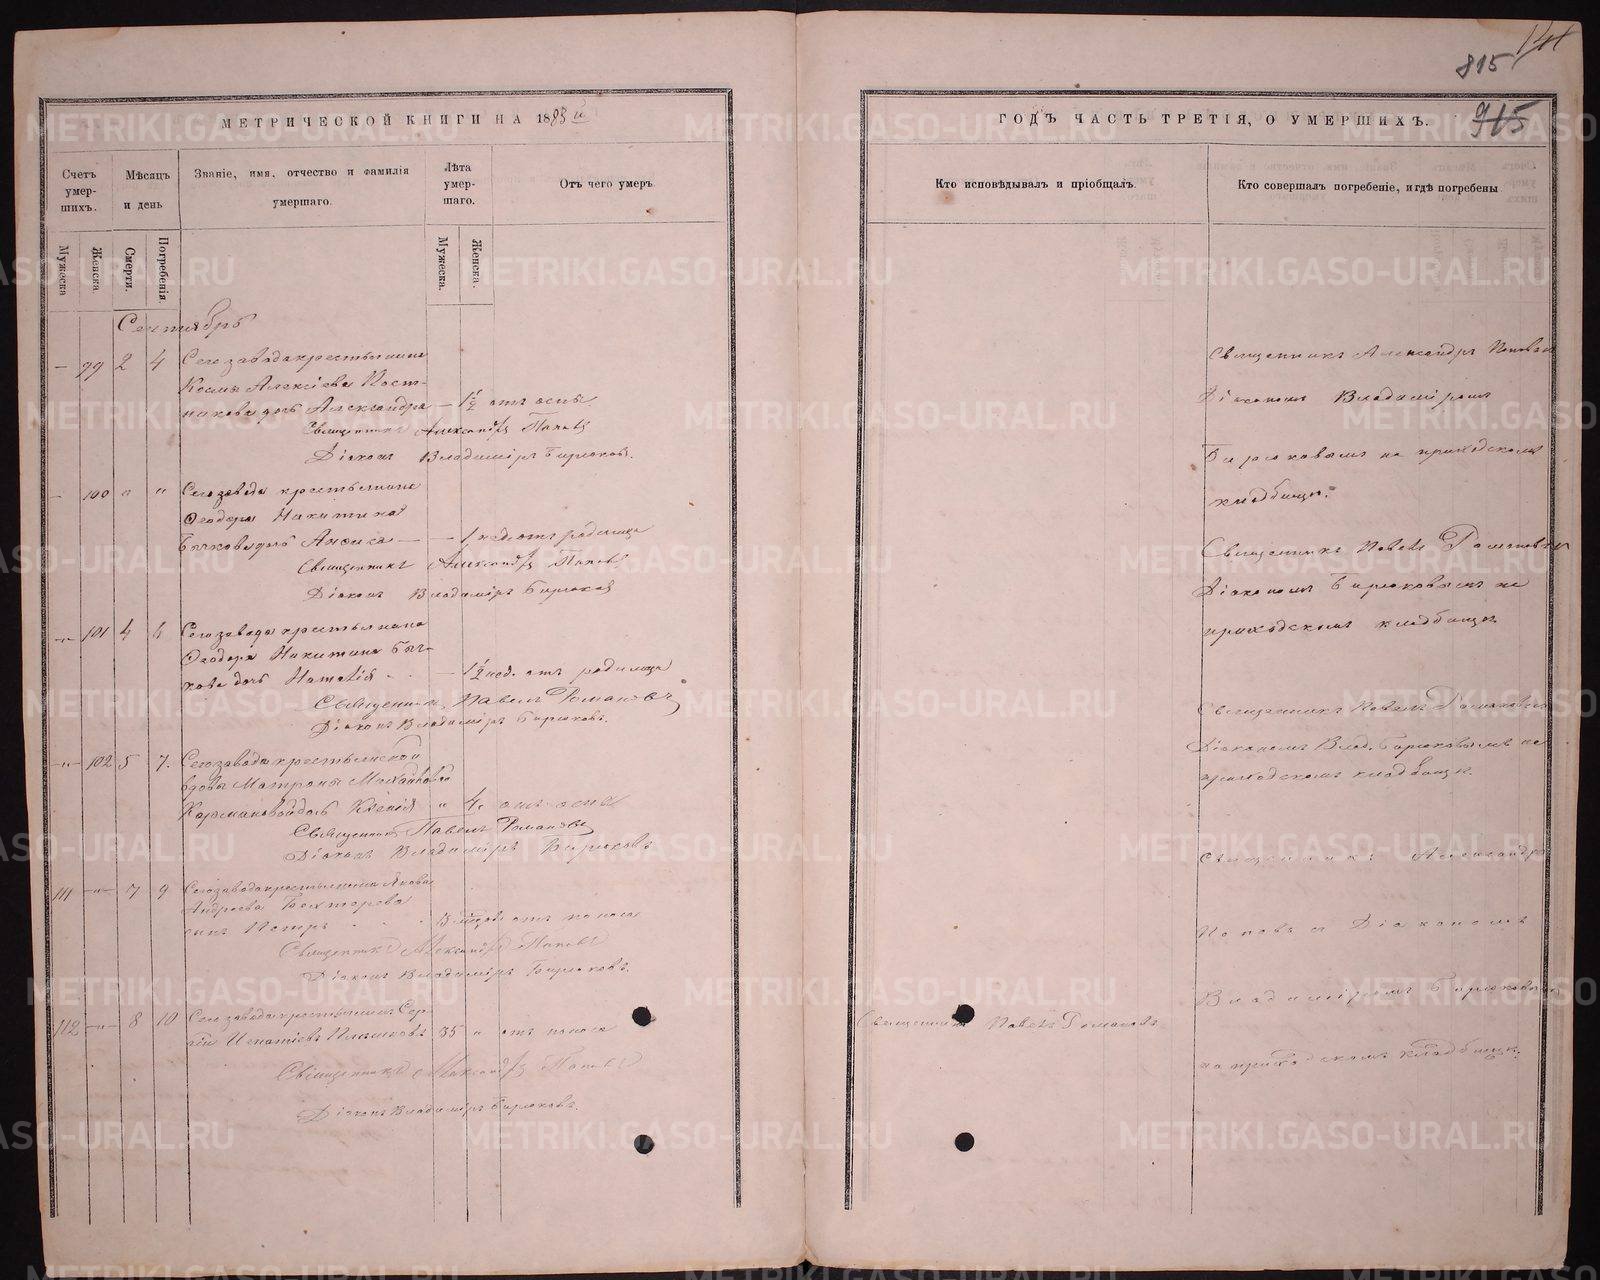 МЕТРИЧЕСКОЙ КНИГИ НА 1883 й
Счетъ умер- шихъ.
Мѣсяцъ и день
Званіе, имя, отчество и фамилія умершаго.
Лѣта умер- шаго.
Отъ чего умеръ.
Мужеска
Женска.
Смерти.
Погребенія.
Мужеска.
Женска.
Сентябрь
— 99 2 4 Сего завода крестьянина
Космы Алексіева Пост-
никова дочь Александра — 1½ отъ оспы
Священникъ Александръ Поповъ
Діаконъ Владиміръ Бирюковъ.
- 100 " " Сего завода крестьянина
Ѳеодора Никитина
Бычкова дочь Анѳиса — — 1 нед. отъ родимца
Священникъ Александръ Поповъ
Діаконъ Владиміръ Бирюковъ
-"- 101 4 6 Сего завода крестьянина
Ѳеодора Никитина Быч-
кова дочь Наталія - - — 1½ нед. отъ родимца
Священникъ Павелъ Романовъ
Діаконъ Владиміръ Бирюковъ.
-"- 102 5 7. Сего завода крестьянской
вдовы Матроны Михайловой
дочь Ксенія " 4. отъ оспы
Священникъ Павелъ Романовъ
Діаконъ Владиміръ Бирюковъ
111 -"- 7 9 Сего завода крестьянина Якова
Андреева Бехтерева
сынъ Петръ отъ поноса
Священникъ Александръ Поповъ
Діаконъ Владиміръ Бирюковъ.
112 -"- 8 10 Сего завода крестьянинъ Сер-
гій Игнатіевъ 35 " отъ поноса
Священникъ Александръ Поповъ
Діаконъ Владиміръ Бирюковъ.
141
815
915
ГОДЪ ЧАСТЬ ТРЕТІЯ, О УМЕРШИХЪ.
Кто исповѣдывалъ и пріобщалъ.
Кто совершалъ погребеніе, и гдѣ погребены
Священникъ Александръ Поповъ
Діакономъ Владиміромъ
Бирюковымъ на приходскомъ
кладбищѣ.
Священникъ Павелъ Романовъ
Діакономъ Бирюковымъ на
приходскомъ кладбищѣ
Священникъ Павелъ Романовъ
Діакономъ Влад. Бирюковымъ на
приходскомъ кладбищѣ.
Священникъ Александръ
Поповъ съ Діакономъ
Владиміромъ Бирюковымъ
Священникъ Павелъ Романовъ
на приходскомъ кладбищѣ.
METRIKI.GASO-URAL.RU